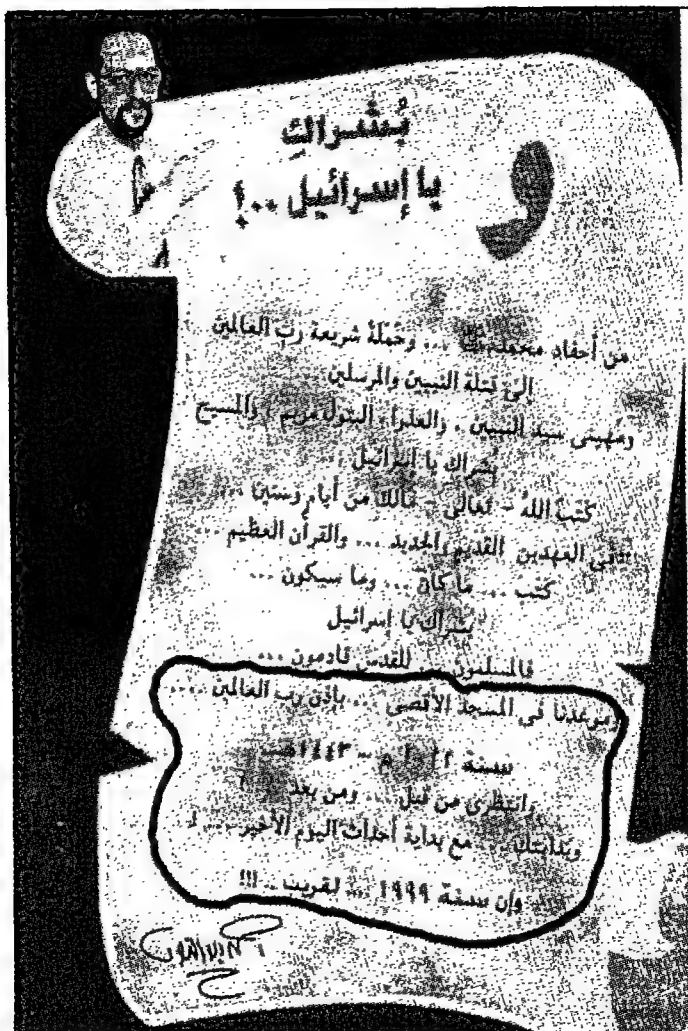 بُشراكِ
يا إسرائيل ..!
من أحفاد محمد ... وحَمَلَة شريعة رب العالمين
إلى قتلة النبيين والمرسلين
ومُهيني سيد النبيين ، والعذراء البتول مريم ، والمسيح
بُشراك يا إسرائيل
كتب اللهُ - تعالى - مالك من أيام وسنين ...
في العهدين القديم والجديد ... والقرآن العظيم ...
كتب ... ما كان ... وما سيكون ...
بشراك يا إسرائيل
فالمسلمون للقدس قادمون ...
وموعدنا في المسجد الأقصى ... بإذن رب العالمين ....
سنة م - ١٤٤٣هـ
وانتظرى من قبل ... ومن بعد
وبدايتك مع بداية أحداث اليوم الأخير ... !
وإن سنة ١٩٩٩ ... لقريب .. !!!